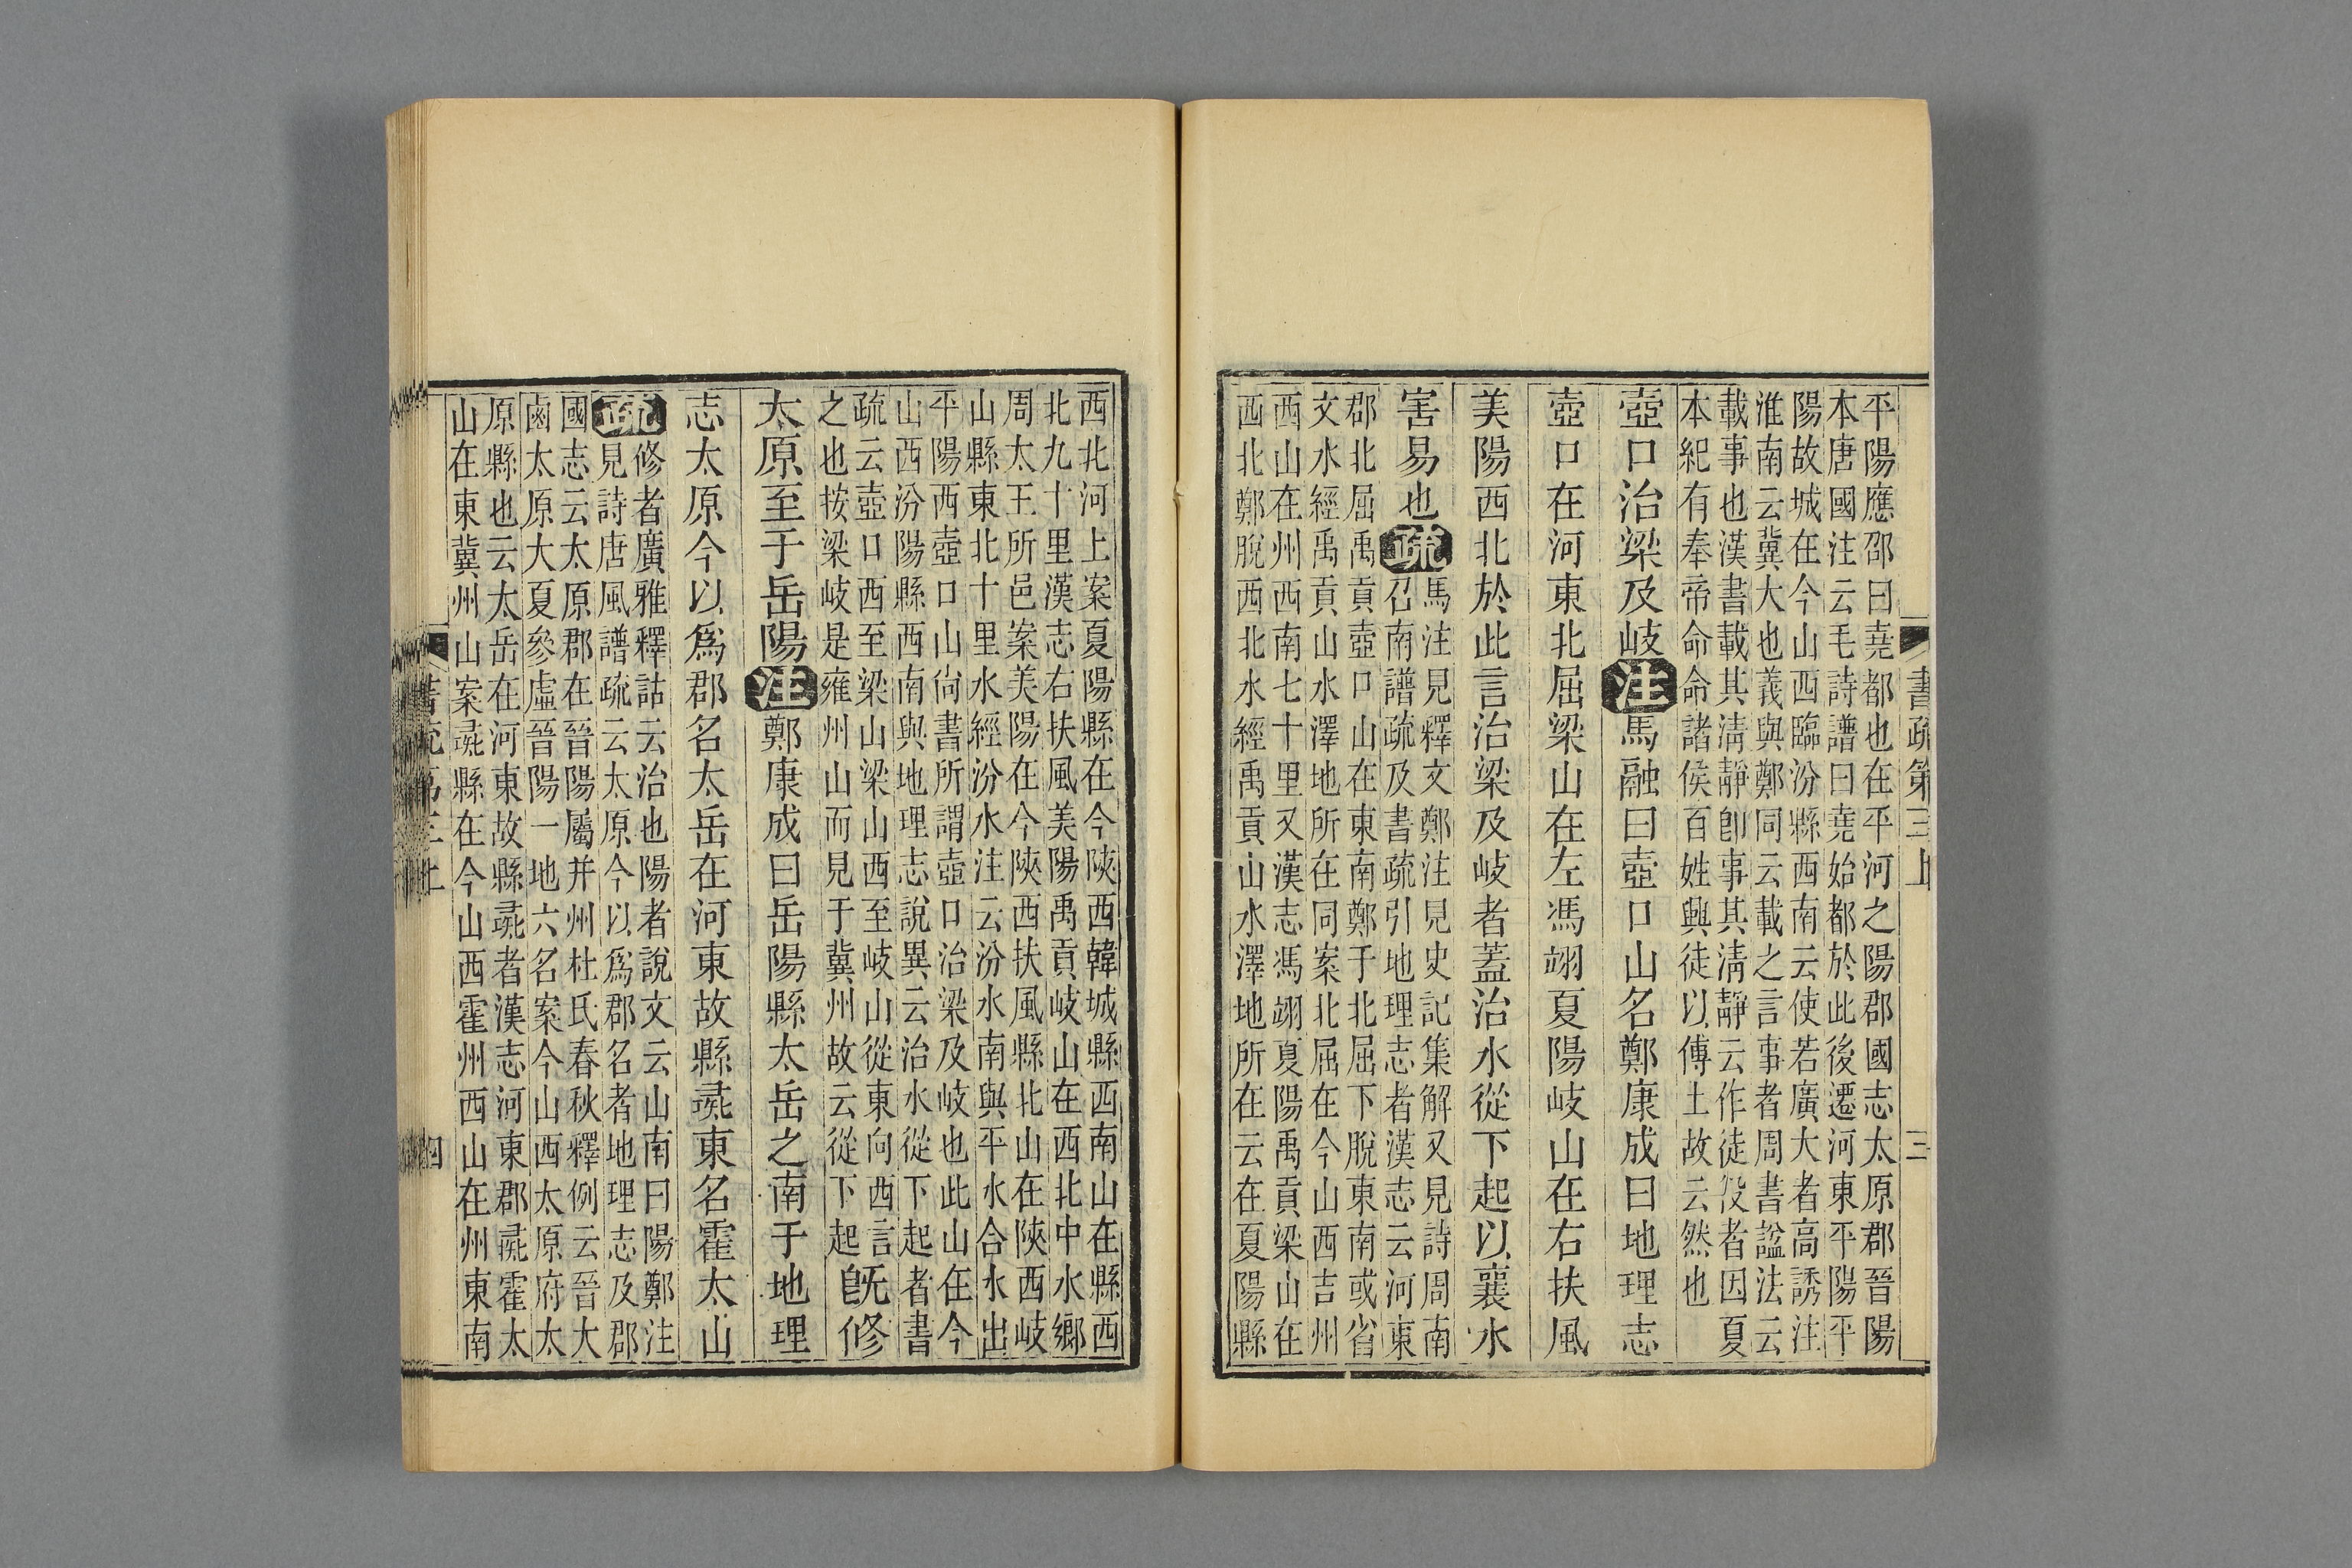 書疏第三上
三
平陽應邵曰堯都也在平河之陽郡國志太原郡晉陽
本唐國注云毛詩譜曰堯始都於此後遷河東平陽平
陽故城在今山西臨汾縣西南云使若廣大者高誘注
淮南云冀大也義與鄭同云載之言事者周書諡法云
載事也漢書載其淸靜卽事其淸靜云作徒役者因夏
本紀有奉帝命命諸侯百姓興徒以傅土故云然也
壺口治梁及岐注馬融曰壺口山名鄭康成曰地理志
壺口在河東北屈梁山在左馮翊夏陽岐山在右扶風
美陽西北於此言治梁及岐者蓋治水從下起以襄水
害易也疏馬注見釋文鄭注見史記集解又見詩周南
召南譜疏及書疏引地理志者漢志云河東
郡北屈禹貢壺口山在東南鄭于北屈下脫東南或省
文水經禹貢山水澤地所在同案北屈在今山西吉州
西山在州西南七十里又漢志馮翊夏陽禹貢梁山在
西北鄭脫西北水經禹貢山水澤地所在云在夏陽縣
西北河上案夏陽縣在今陝西韓城縣西南山在縣西
北九十里漢志右扶風美陽禹貢岐山在西北中水鄉
周太王所邑案美陽在今陝西扶風縣北山在陝西岐
山縣東北十里水經汾水注云汾水南與平水合水出
平陽西壺口山尙書所謂壺口治梁及岐也此山在今
山西汾陽縣西南與地理志說異云治水從下起者書
疏云壺口西至梁山梁山西至岐山從東向西言
之也按梁岐是雍州山而見于冀州故云從下起旣修
太原至于岳陽注鄭康成曰岳陽縣太岳之南于地理
志太原今以爲郡名太岳在河東故縣彘東名霍太山
疏修者廣雅釋詁云治也陽者說文云山南曰陽鄭注
見詩唐風譜疏云太原今以爲郡名者地理志及郡
國志云太原郡在晉陽屬并州杜氏春秋釋例云晉大
鹵太原大夏參虛晉陽一地六名案今山西太原府太
原縣也云太岳在河東故縣彘者漢志河東郡彘霍太
山在東冀州山案彘縣在今山西霍州西山在州東南
四